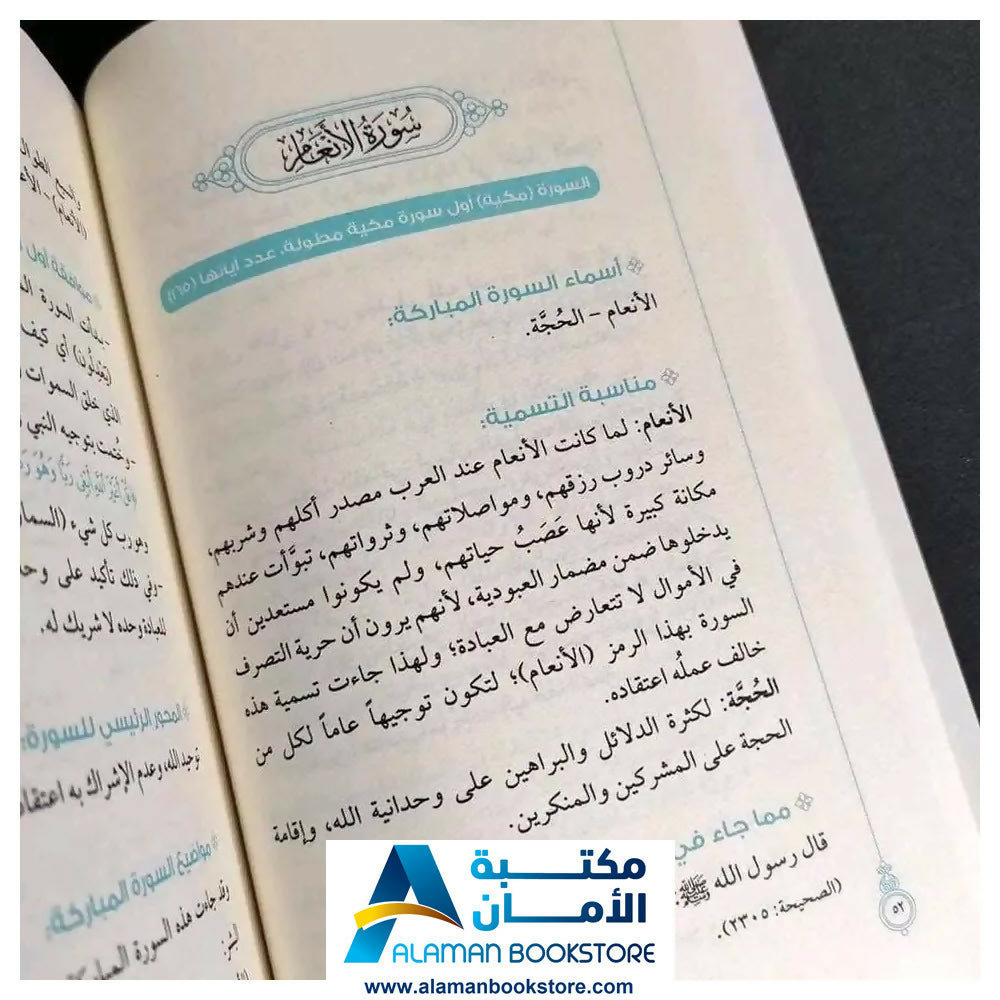 سُورَةُ الأَنْعَامِ
السورة (مكية) أول سورة مكية مطولة، عدد آياتها (١٦٥)
أسماء السورة المباركة:
الأنعام – الحُجَّة.
مناسبة التسمية:
الأنعام: لما كانت الأنعام عند العرب مصدر أكلهم وشربهم،
وسائر دروب رزقهم، ومواصلاتهم، وثرواتهم، تبوَّأت عندهم
مكانة كبيرة لأنها عَصَبُ حياتهم، ولم يكونوا مستعدين أن
يدخلوها ضمن مضمار العبودية، لأنهم يرون أن حرية التصرف
في الأموال لا تتعارض مع العبادة؛ ولهذا جاءت تسمية هذه
السورة بهذا الرمز (الأنعام)؛ لتكون توجيهاً عاماً لكل من
خالف عملُه اعتقاده.
الحُجَّة: لكثرة الدلائل والبراهين على وحدانية الله، وإقامة
الحجة على المشركين والمنكرين.
مما جاء في
قال رسول الله ﷺ
(الصحيحة: ٢٣٠٥).
٥٢
موافقة أول
-بدأت السورة
أي كيف
الذي خلق السموات
-وخُتمت بتوجيه النبي
وهو رب كل شيء (السما
-وفي ذلك تأكيد على وح
للعبادة وحده لا شريك له.
المحور الرئيسي للسورة:
توحيد الله، وعدم الإشراك به اعتقاد
مواضيع السورة المباركة:
وقد جاءت هذه السورة المبارك
مكتبة
الأمان
ALAMAN BOOKSTORE
www.alamanbookstore.com